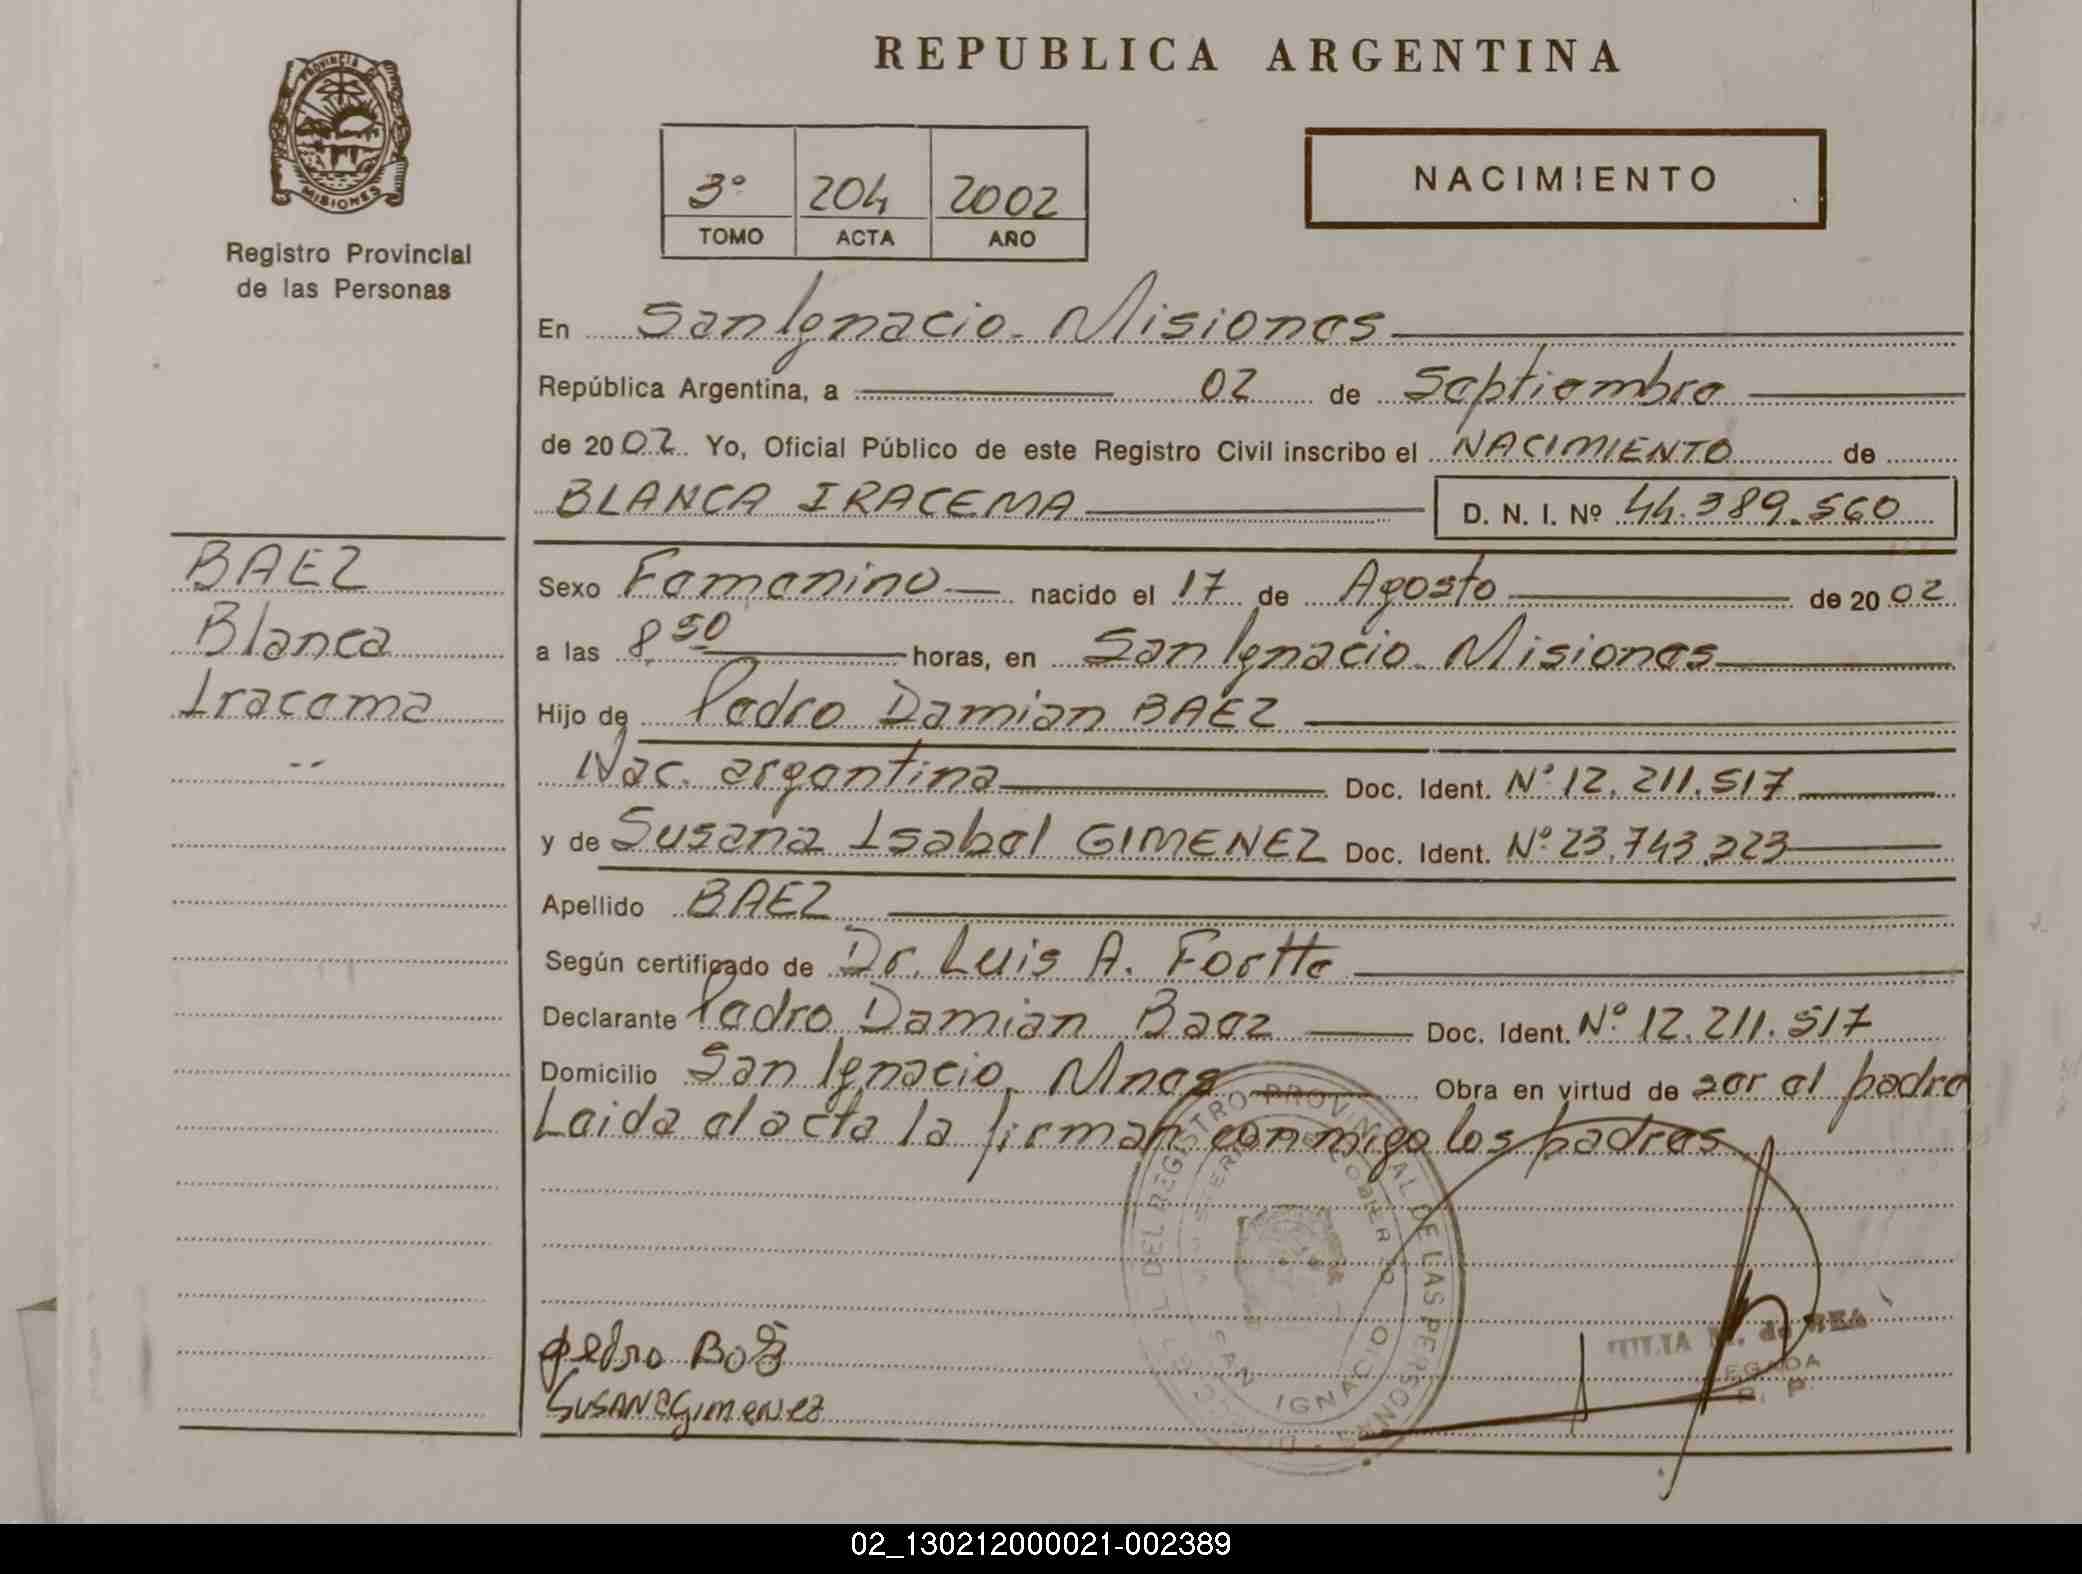 REPUBLICA ARGENTINA
PROVINCIA DE
MISIONES
Registro Provincial
de las Personas
3° 204 2002
TOMO ACTA AÑO
NACIMIENTO
En San Ignacio - Misiones
República Argentina, a 02 de Septiembre
de 2002 Yo, Oficial Público de este Registro Civil inscribo el NACIMIENTO de
BLANCA IRACEMA D. N. I. Nº 44.389.560
BAEZ
Blanca
Iracema
Sexo Femenino nacido el 17 de Agosto de 2002
a las 8,50 horas, en San Ignacio - Misiones
Hijo de Pedro Damian BAEZ
Nac. argentina Doc. Ident. Nº 12.211.517
y de Susana Isabel GIMENEZ Doc. Ident. Nº 23.743.223
Apellido BAEZ
Según certificado de Dr. Luis A. Fortte
Declarante Pedro Damian Baez Doc. Ident. Nº 12.211.517
Domicilio San Ignacio, Mnes Obra en virtud de ser el padre
Leida el acta la firman conmigo los padres
DEL REGISTRO PROVINCIAL DE LAS PERSONAS
SAN IGNACIO
M. de REA
R. P.
pedro Baez
SUSANA Gimenez
02_130212000021-002389